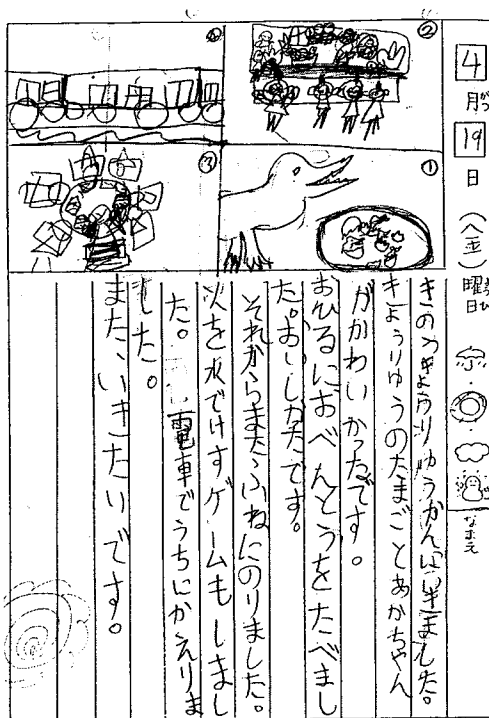 4月がつ19日(金)曜ようび
なまえ
②
④
①
③
きのうきょうりゅうかんにいきました。
きょうりゅうのたまごとあかちゃん
がかわいかったです。
おひるにおべんとうをたべまし
た。おいしかたです。
それからまた、ふねにのりました。
火を水でけすゲームもしまし
た。電車でうちにかえりま
した。
また、いきたいです。